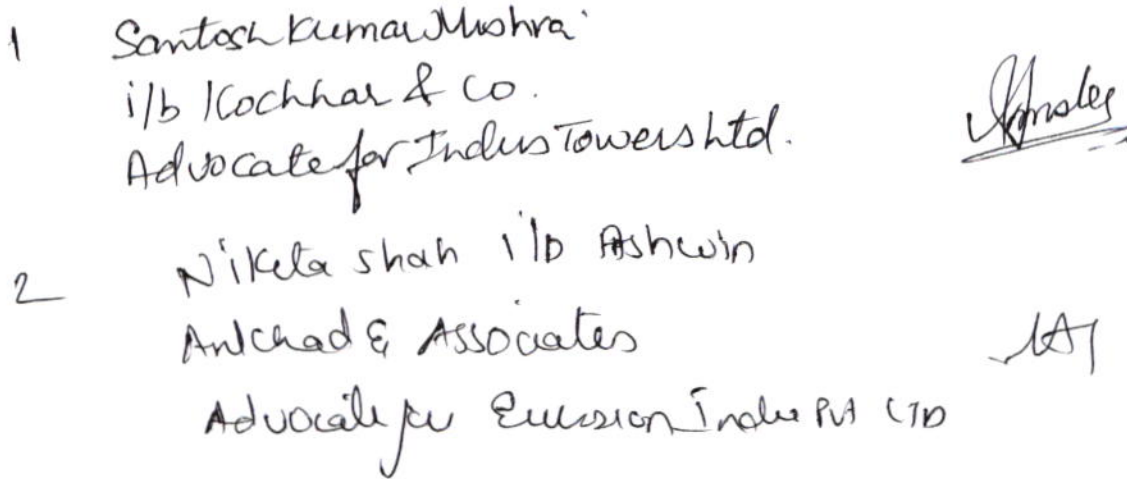 1 Santosh Kumar Mishra
i/b Kochhar & Co.
Advocate for Indus Towers Ltd.
2 Nikita Shah i/b Ashwin
Ankhad & Associates
Advocate for India Pvt LTD